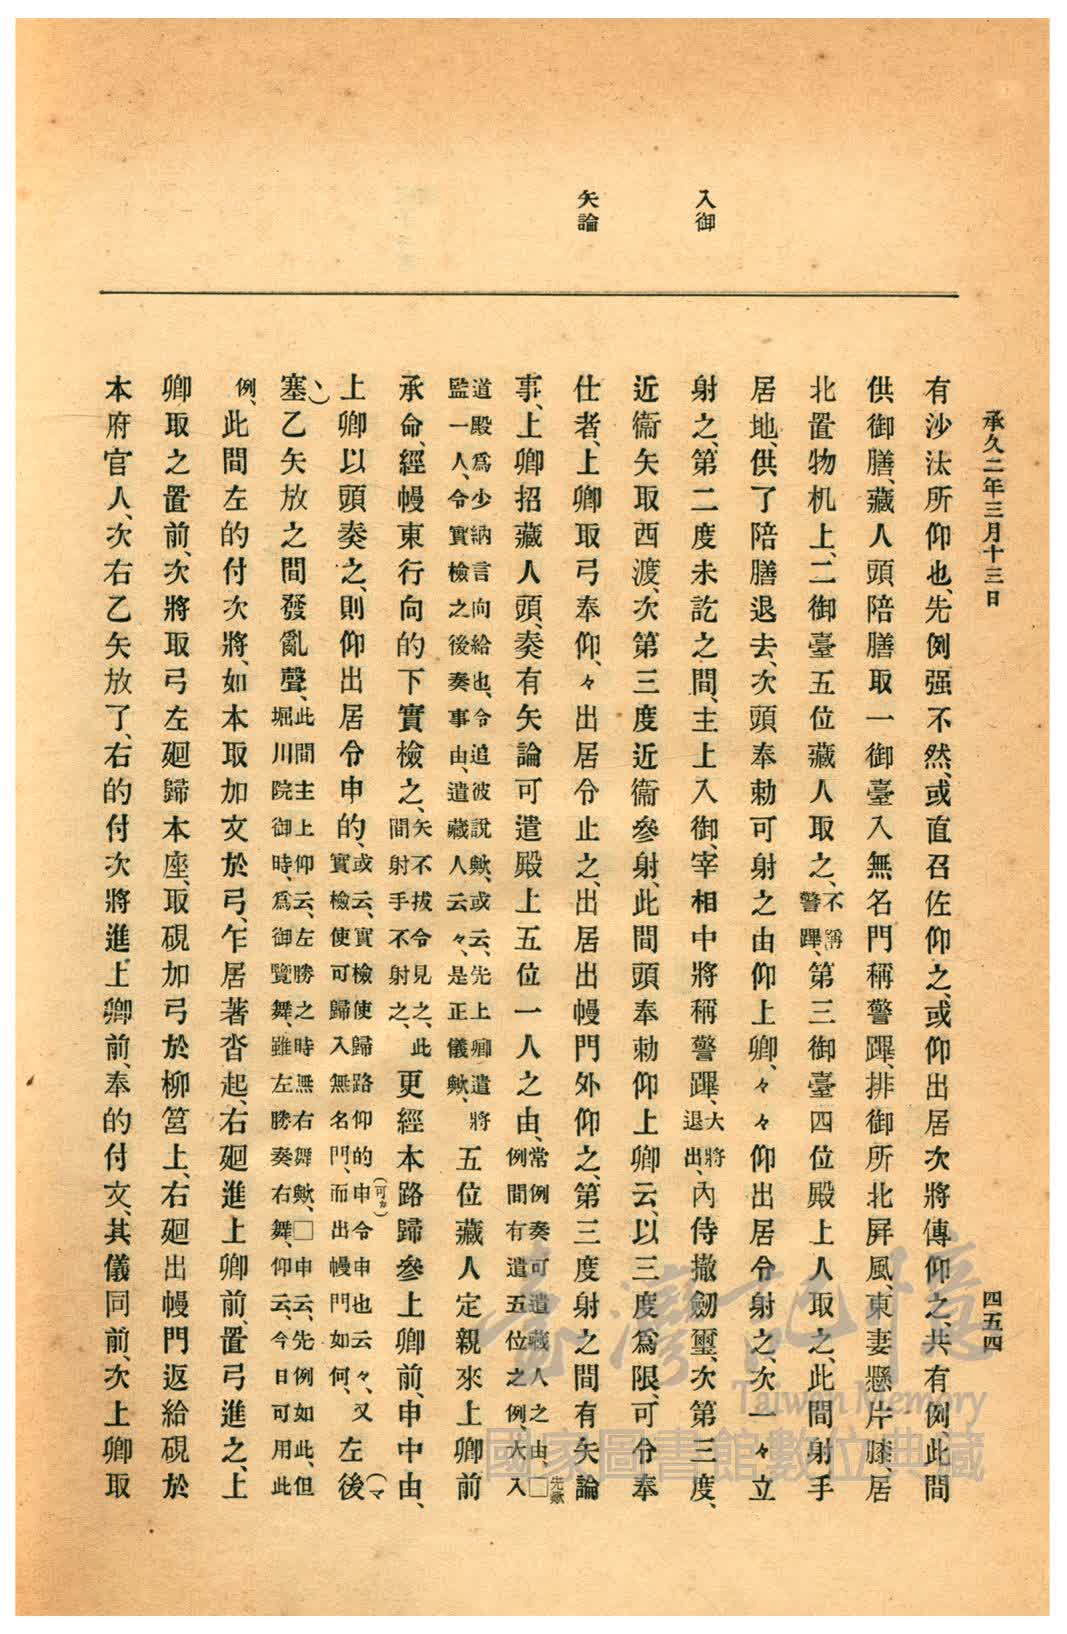 承久二年三月十三日
四五四
入御
矢論
有沙汰所仰也、先例强不然、或直召佐仰之、或仰出居次將傳仰之、共有例、此間
供御膳、藏人頭陪膳取一御臺入無名門稱警蹕、排御所北屛風、東妻懸片膝、居
北置物机上、二御臺五位藏人取之、不稱警蹕、第三御臺四位殿上人取之、此間射手
居地、供了陪膳退去、次頭奉勅可射之由仰上卿、々々仰出居令射之、次一々立
射之、第二度未訖之間、主上入御、宰相中將稱警蹕、大將退出、內侍撤劒璽、次第三度、
近衞矢取西渡、次第三度近衞參射、此間頭奉勅仰上卿云、以三度爲限、可令奉
仕者、上卿取弓奉仰、々出居令止之、出居出幔門外仰之、第三度射之間有矢論
事、上卿招藏人頭、奏有矢論可遣殿上五位一人之由、常例奏可遣藏人之由、□先歟例間有遣五位之例、大入
道殿爲少納言向給也、令追彼說歟、或云、先上卿遣將監一人、令實檢之後奏事由、遣藏人云々、是正儀歟、五位藏人定親來上卿前
承命、經幔東行向的下實檢之、矢不拔令見之、此間射手不射之、更經本路歸參上卿前、申中由、
上卿以頭奏之、則仰出居令申的、或云、實檢使歸路仰的申(可カ)令申也云々、又實檢使可歸入無名門、而出幔門如何、左後(マ
、)塞乙矢放之間發亂聲、此間主上仰云、左勝之時無右舞歟、□申云、先例如此、但堀川院御時、爲御覽舞、雖左勝奏右舞、仰云、今日可用此
例、此間左的付次將、如本取加文於弓、乍居著沓起、右廻進上卿前、置弓進之、上
卿取之置前、次將取弓左廻歸本座、取硯加弓於柳筥上、右廻出幔門返給硯於
本府官人、次右乙矢放了、右的付次將進上卿前、奉的付文、其儀同前、次上卿取
臺灣記憶
Taiwan Memory
國家圖書館數位典藏